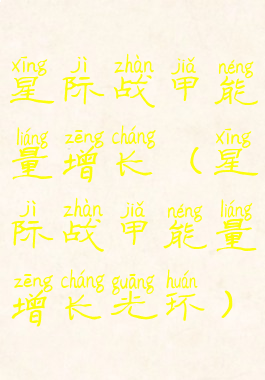 xīng jì zhàn jiǎ néng
星际战甲能
liáng zēng cháng xīng
量增长（星
jì zhàn jiǎ néng liáng
际战甲能量
zēng cháng guāng huán
增长光环）